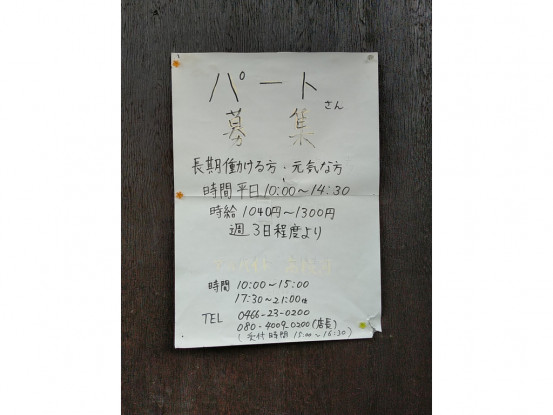 パート
さん
募集
長期働ける方・元気な方
時間平日10:00〜14:30
時給1040円〜1300円
週3日程度より
時間 10:00〜15:00
17:30〜21:00
TEL 0466-23-0200
080-4009-0200(店長)
(受付時間 15:00〜16:30)